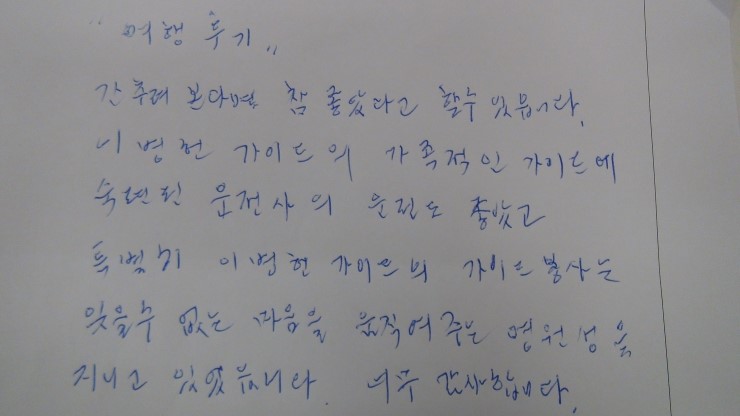 "여행 후기"
간추려 본다면, 참 좋았다고 할수 있읍니다.
이병헌 가이드의 가족적인 가이드에
숙련된 운전사의 운전도 좋았고
특별히 이병헌 가이드의 가이드 봉사는
잊을수 없는 마음을 움직여주는 영원성을
지니고 있었읍니다. 너무 감사합니다.